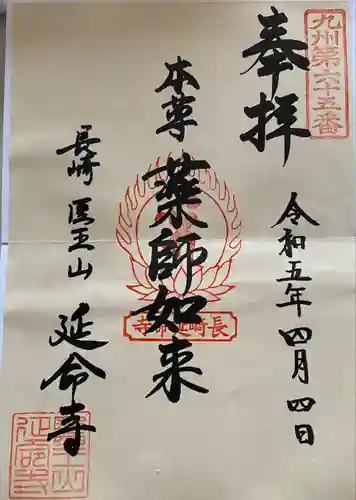 九州第六十五番
奉拝
令和五年四月四日
本尊
薬師如来
長崎延命寺
長崎 医王山
延命寺